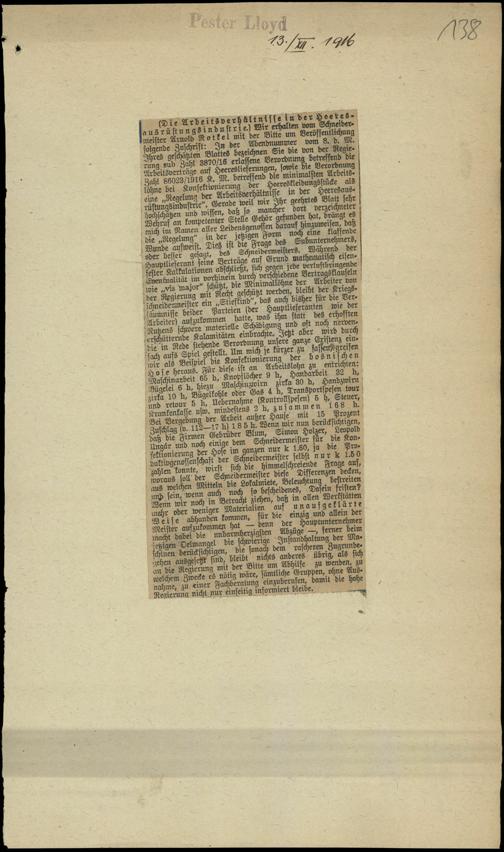 Pester Lloyd
13./XII. 1916
138
(Die Arbeitsverhältnisse in der Heeres-
ausrüstungsindustrie.) Wir erhalten vom Schneider-
meister Arnold Rotkel mit der Bitte um Veröffentlichung
folgende Zuschrift: In der Abendnummer vom 8. d. M.
Ihres geschätzten Blattes bezeichnen Sie die von der Regie-
rung sub Zahl 3870/16 erlassene Verordnung betreffend die
Arbeitsverträge auf Heereslieferungen, sowie die Verordnung
Zahl 86023/1916 K. M. betreffend die minimalsten Arbeits-
löhne bei Konfektionierung der Heereskleidungsstücke als
eine „Regelung der Arbeitsverhältnisse in der Heeresaus-
rüstungsindustrie“. Gerade weil wir Ihr geehrtes Blatt sehr
hochschätzen und wissen, daß so mancher dort verzeichneter
Wehruf an kompetenter Stelle Gehör gefunden hat, drängt es
mich im Namen aller Leidensgenossen darauf hinzuweisen, daß
die „Regelung“ in der jetzigen Form noch eine klaffende
Wunde aufweist. Dies ist die Frage des Subunternehmers,
oder besser gesagt, des Schneidermeisters. Während der
Hauptlieferant seine Verträge auf Grund mathematisch eisen-
fester Kalkulationen abschließt, sich gegen jede verlustbringende
Eventualität im vorhinein durch verschiedene Vertragsklauseln
wie „vis major“ schützt, die Minimallöhne der Arbeiter von
der Regierung mit Recht geschützt werden, bleibt der Kriegs-
schneidermeister ein „Stiefkind“, das auch bisher für die Ver-
säumnisse beider Parteien (der Hauptlieferanten wie der
Arbeiter) aufzukommen hatte, was ihm statt des erhofften
Nutzens schwere materielle Schädigung und oft noch nerven-
erschütternde Kalamitäten einbrachte. Jetzt aber wird durch
die in Rede stehende Verordnung unsere ganze Existenz ein-
fach aufs Spiel gestellt. Um mich je kürzer zu fassen, greifen
wir als Beispiel die Konfektionierung der bosnischen
Hose heraus. Für diese ist an Arbeitslohn zu entrichten:
Maschinarbeit 65 h, Knopflöcher 9 h, Handarbeit 32 h,
Bügelei 6 h, hiezu Maschinzwirn zirka 30 h, Handzwirn
zirka 10 h, Bügelkohle oder Gas 4 h, Transportspesen tour
und retour 5 h, Uebernahme (Kontrollspesen) 5 h, Steuer,
Krankenkasse usw. mindestens 2 h, zusammen 168 h.
Bei Vergebung der Arbeit außer Hause mit 15 Prozent
Zuschlag (v. 112—17 h) 185 h. Wenn wir nun berücksichtigen,
daß die Firmen Gebrüder Blum, Simon Holzer, Leopold
Ungár und noch einige dem Schneidermeister für die Kon-
fektionierung der Hose im ganzen nur k 1.60, ja die Pro-
duktivgenossenschaft der Schneidermeister selbst nur k 1.50
zahlen konnte, wirft sich die himmelschreiende Frage auf,
woraus soll der Schneidermeister diese Differenzen decken,
aus welchen Mitteln die Lokalmiete, Beleuchtung bestreiten
und sein, wenn auch noch so bescheidenes, Dasein fristen?
Wenn wir noch in Betracht ziehen, daß in allen Werkstätten
mehr oder weniger Materialien auf unaufgeklärte
Weise abhanden kommen, für die einzig und allein der
Meister aufzukommen hat — denn der Hauptunternehmer
macht dabei die unbarmherzigsten Abzüge —, ferner beim
jetzigen Oelmangel die schwierige Instandhaltung der Ma-
schinen berücksichtigen, die sonach dem rascheren Zugrunde-
gehen ausgesetzt sind, bleibt nichts anderes übrig, als sich
an die Regierung mit der Bitte um Abhilfe zu wenden, zu
welchem Zwecke es nötig wäre, sämtliche Gruppen, ohne Aus-
nahme, zu einer Fachberatung einzuberufen, damit die hohe
Regierung nicht nur einseitig informiert bleibe.